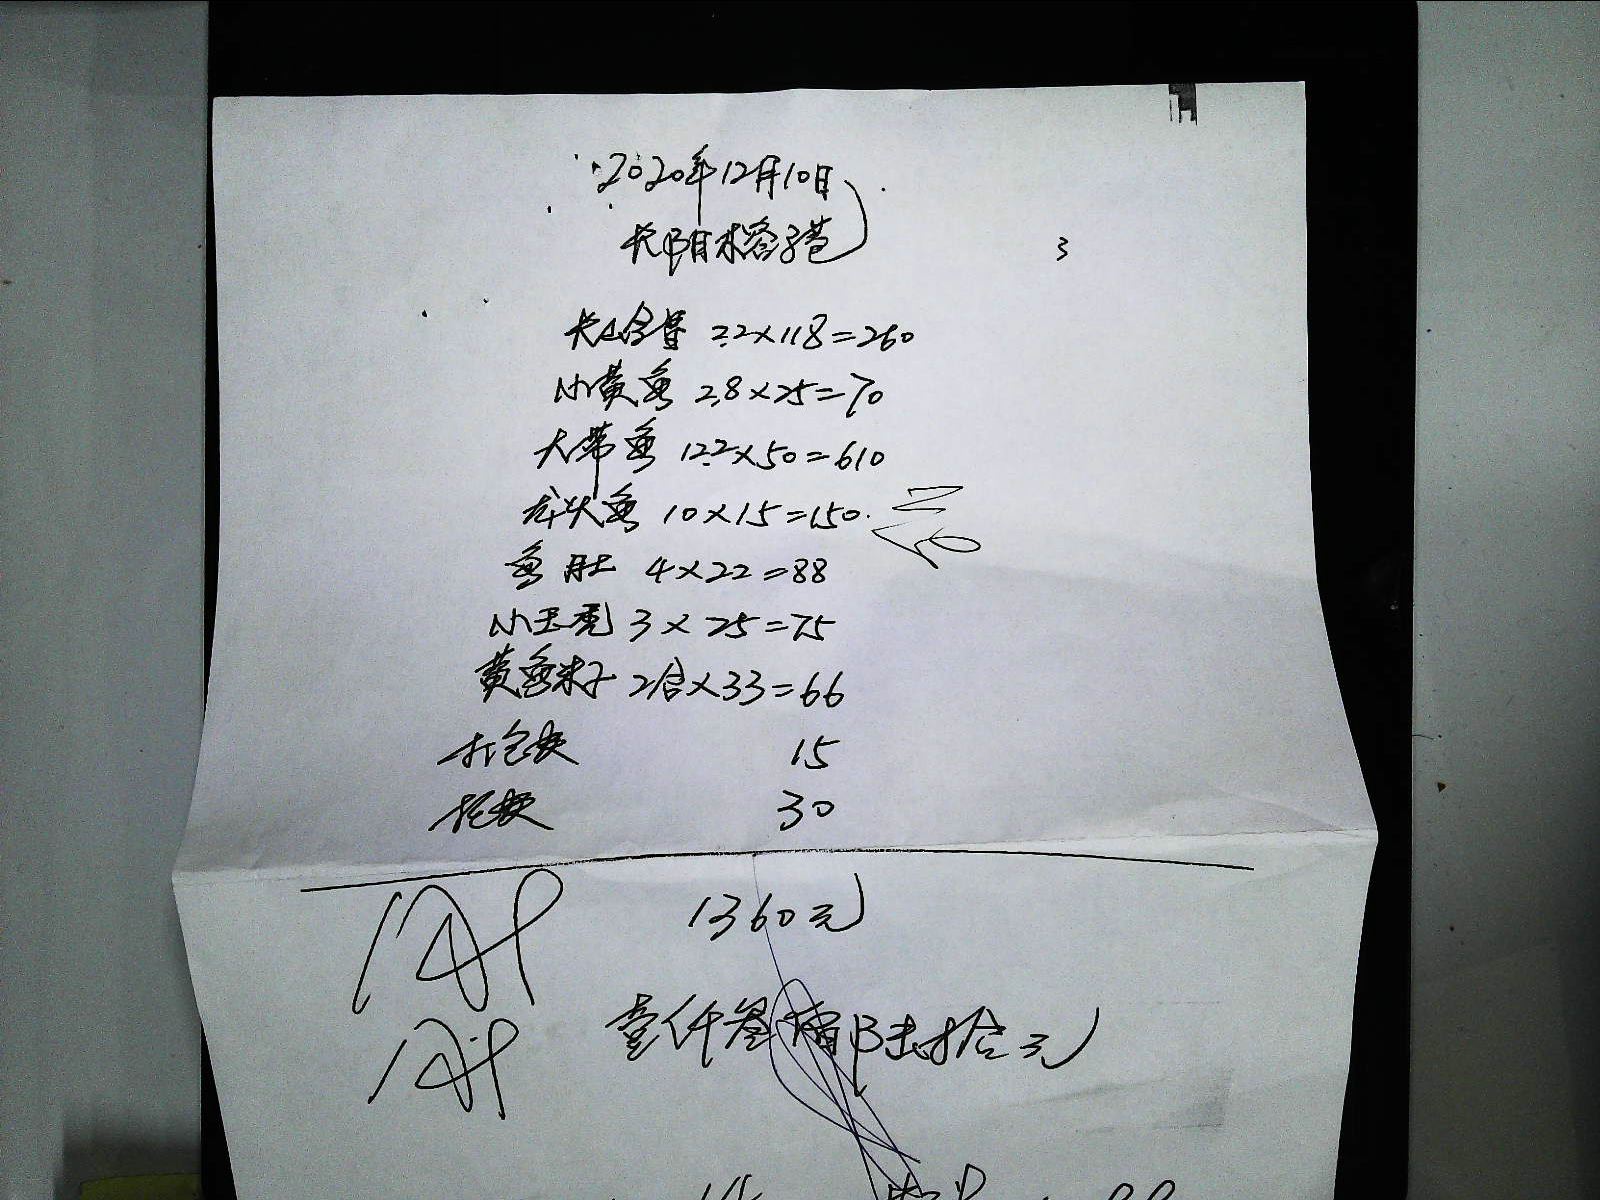 2020年12月10日
长阳木容子巷
3
2.2×118=260
小黄鱼 2.8×25=70
大带鱼 12.2×50=610
龙头鱼 10×15=150
鱼肚 4×22=88
小玉秃 3×25=75
黄鱼米子 2合×33=66
打包费 15
托费 30
1360元
壹仟叁佰陆拾元